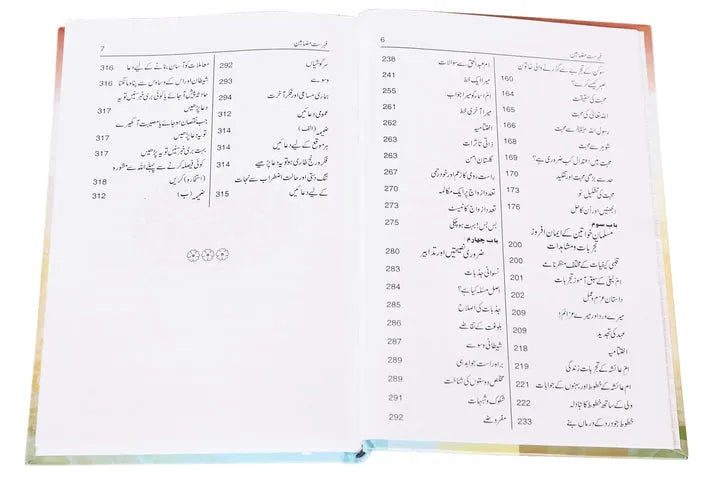 6
فہرست مضامین
سوکن کے تجربے سے گزرنے والی خاتون
صبر کیسے کرے؟ 160
محبت کی حقیقت 164
اللہ تعالیٰ کی محبت 165
رسول اللہ ﷺ سے محبت 166
شوہر سے محبت 168
محبت میں اعتدال کب ضروری ہے؟ 169
حد سے بڑھی محبت اور تقلید 172
محبت کی تشکیلِ نو 173
الجھنیں اور اُن کا حل 176
باب سوم
مسلمان خواتین کے ایمان افروز
تجربات و مشاہدات 200
قلبی کیفیات کے مختلف منظرنامے 200
امّ لیلیٰ کے سبق آموز تجربات 201
داستانِ عزم و عمل 202
میرے درد اور میرے عزائم! 209
عہد کی تجدید 209
اختتامیہ 218
امّ عائشہ کے تجربات زندگی 219
امّ عائشہ کے خطوط اور بہنوں کے جوابات 221
ولی کے ساتھ خطوط کا تبادلہ 222
خطوط جو درد کے درماں بنے 233
امّ عبدالحق سے سوالات 238
میرا ایک خط 241
امّ اسماء کو میرا جواب 255
میرا آخری خط 261
اختتامیہ 262
ذاتی تاثرات 263
گلستانِ امن 263
راست روی کا زعم اور خود رحمی 267
تعدد ازدواج پر ایک مکالمہ
تعدد ازدواج کا ٹیسٹ
بس بس! بہت ہو چکی 275
باب چہارم
ضروری نصیحتیں اور تدابیر 280
نسوانی جذبات
اصل مسئلہ کیا ہے؟ 284
جذبات کی اصلاح 285
بلوغت کے تقاضے 286
شیطانی وسوسے 287
براہِ راست جوابدہی 289
مخلص دوستوں کی شناخت 289
شکوک و شبہات 291
مفروضے 292
فہرست مضامین
7
سرگوشیاں 292
وسوسے 293
ہماری مساعی اور فکرِ آخرت 294
عمومی دعائیں 312
ضمیمہ (الف) 314
ہر موقع کے لیے دعائیں
فکر و رنج طاری ہو تو یہ دعا پڑھیے 314
تنگ دستی اور حالتِ اضطراب سے نجات
کے لیے دعائیں 315
معاملات کو آسان بنانے کے لیے دعا 316
شیطان اور اس کے وساوس سے پناہ مانگنا 316
حادثہ پیش آ جائے یا کوئی بری خبر سنیں تو یہ
دعا پڑھیں 317
جب نقصان ہو جائے یا مصیبت آ گھیرے
تو یہ دعا پڑھیں 317
بہت بری خبر سنیں تو یہ پڑھیں 317
کوئی فیصلہ کرنے سے پہلے اللہ سے مشورہ
(استخارہ) کریں 318
ضمیمہ (ب) 312